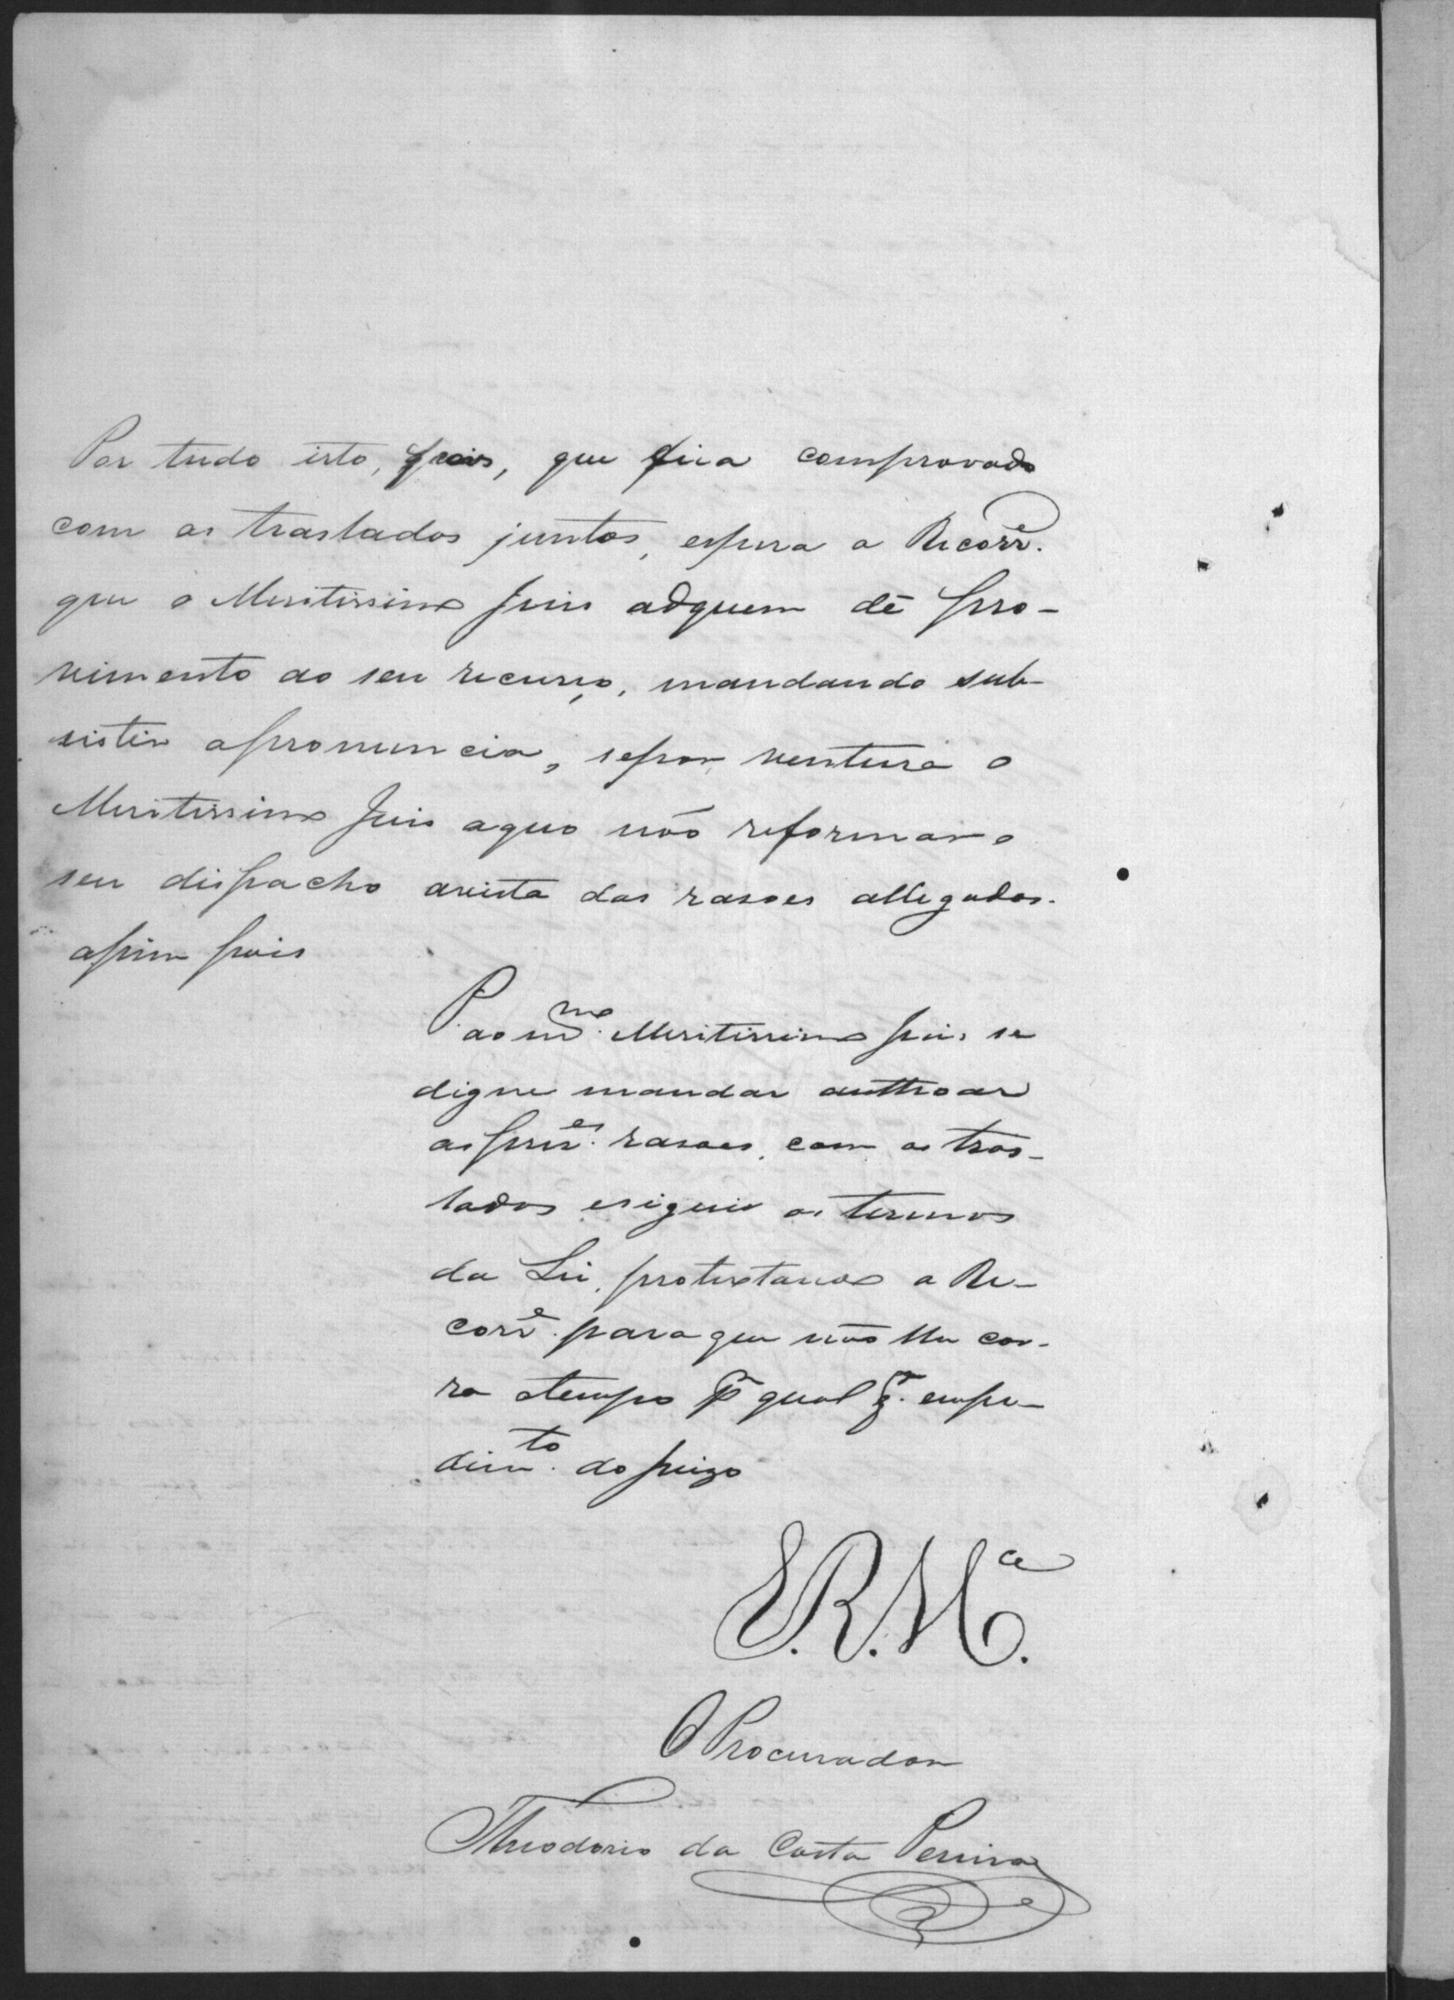 Por tudo isto, pois, que fica comprovado
com os traslados juntos, espera a Recorr.e
que o Meritissimo Juis adquem dê pro-
vimento ao seu recurço, mandando sub-
sistir apronuncia, sepor ventura o
Meritissimo Juis aquo não reformar o
seu dispacho avista das rasoes allegadas.
assim pois
P. ao m.mo Meritissimo Juis se
digne mandar authoar
as pres.es rasoes, com os tras-
lados e siguir os termos
da Lei, protestando a Re-
corr.e para que não lhe cor-
ra tempo p.r qual q.r empe-
dim.to do juizo
E. R. M.ce
O Procurador
Theodorio da Costa Pereira